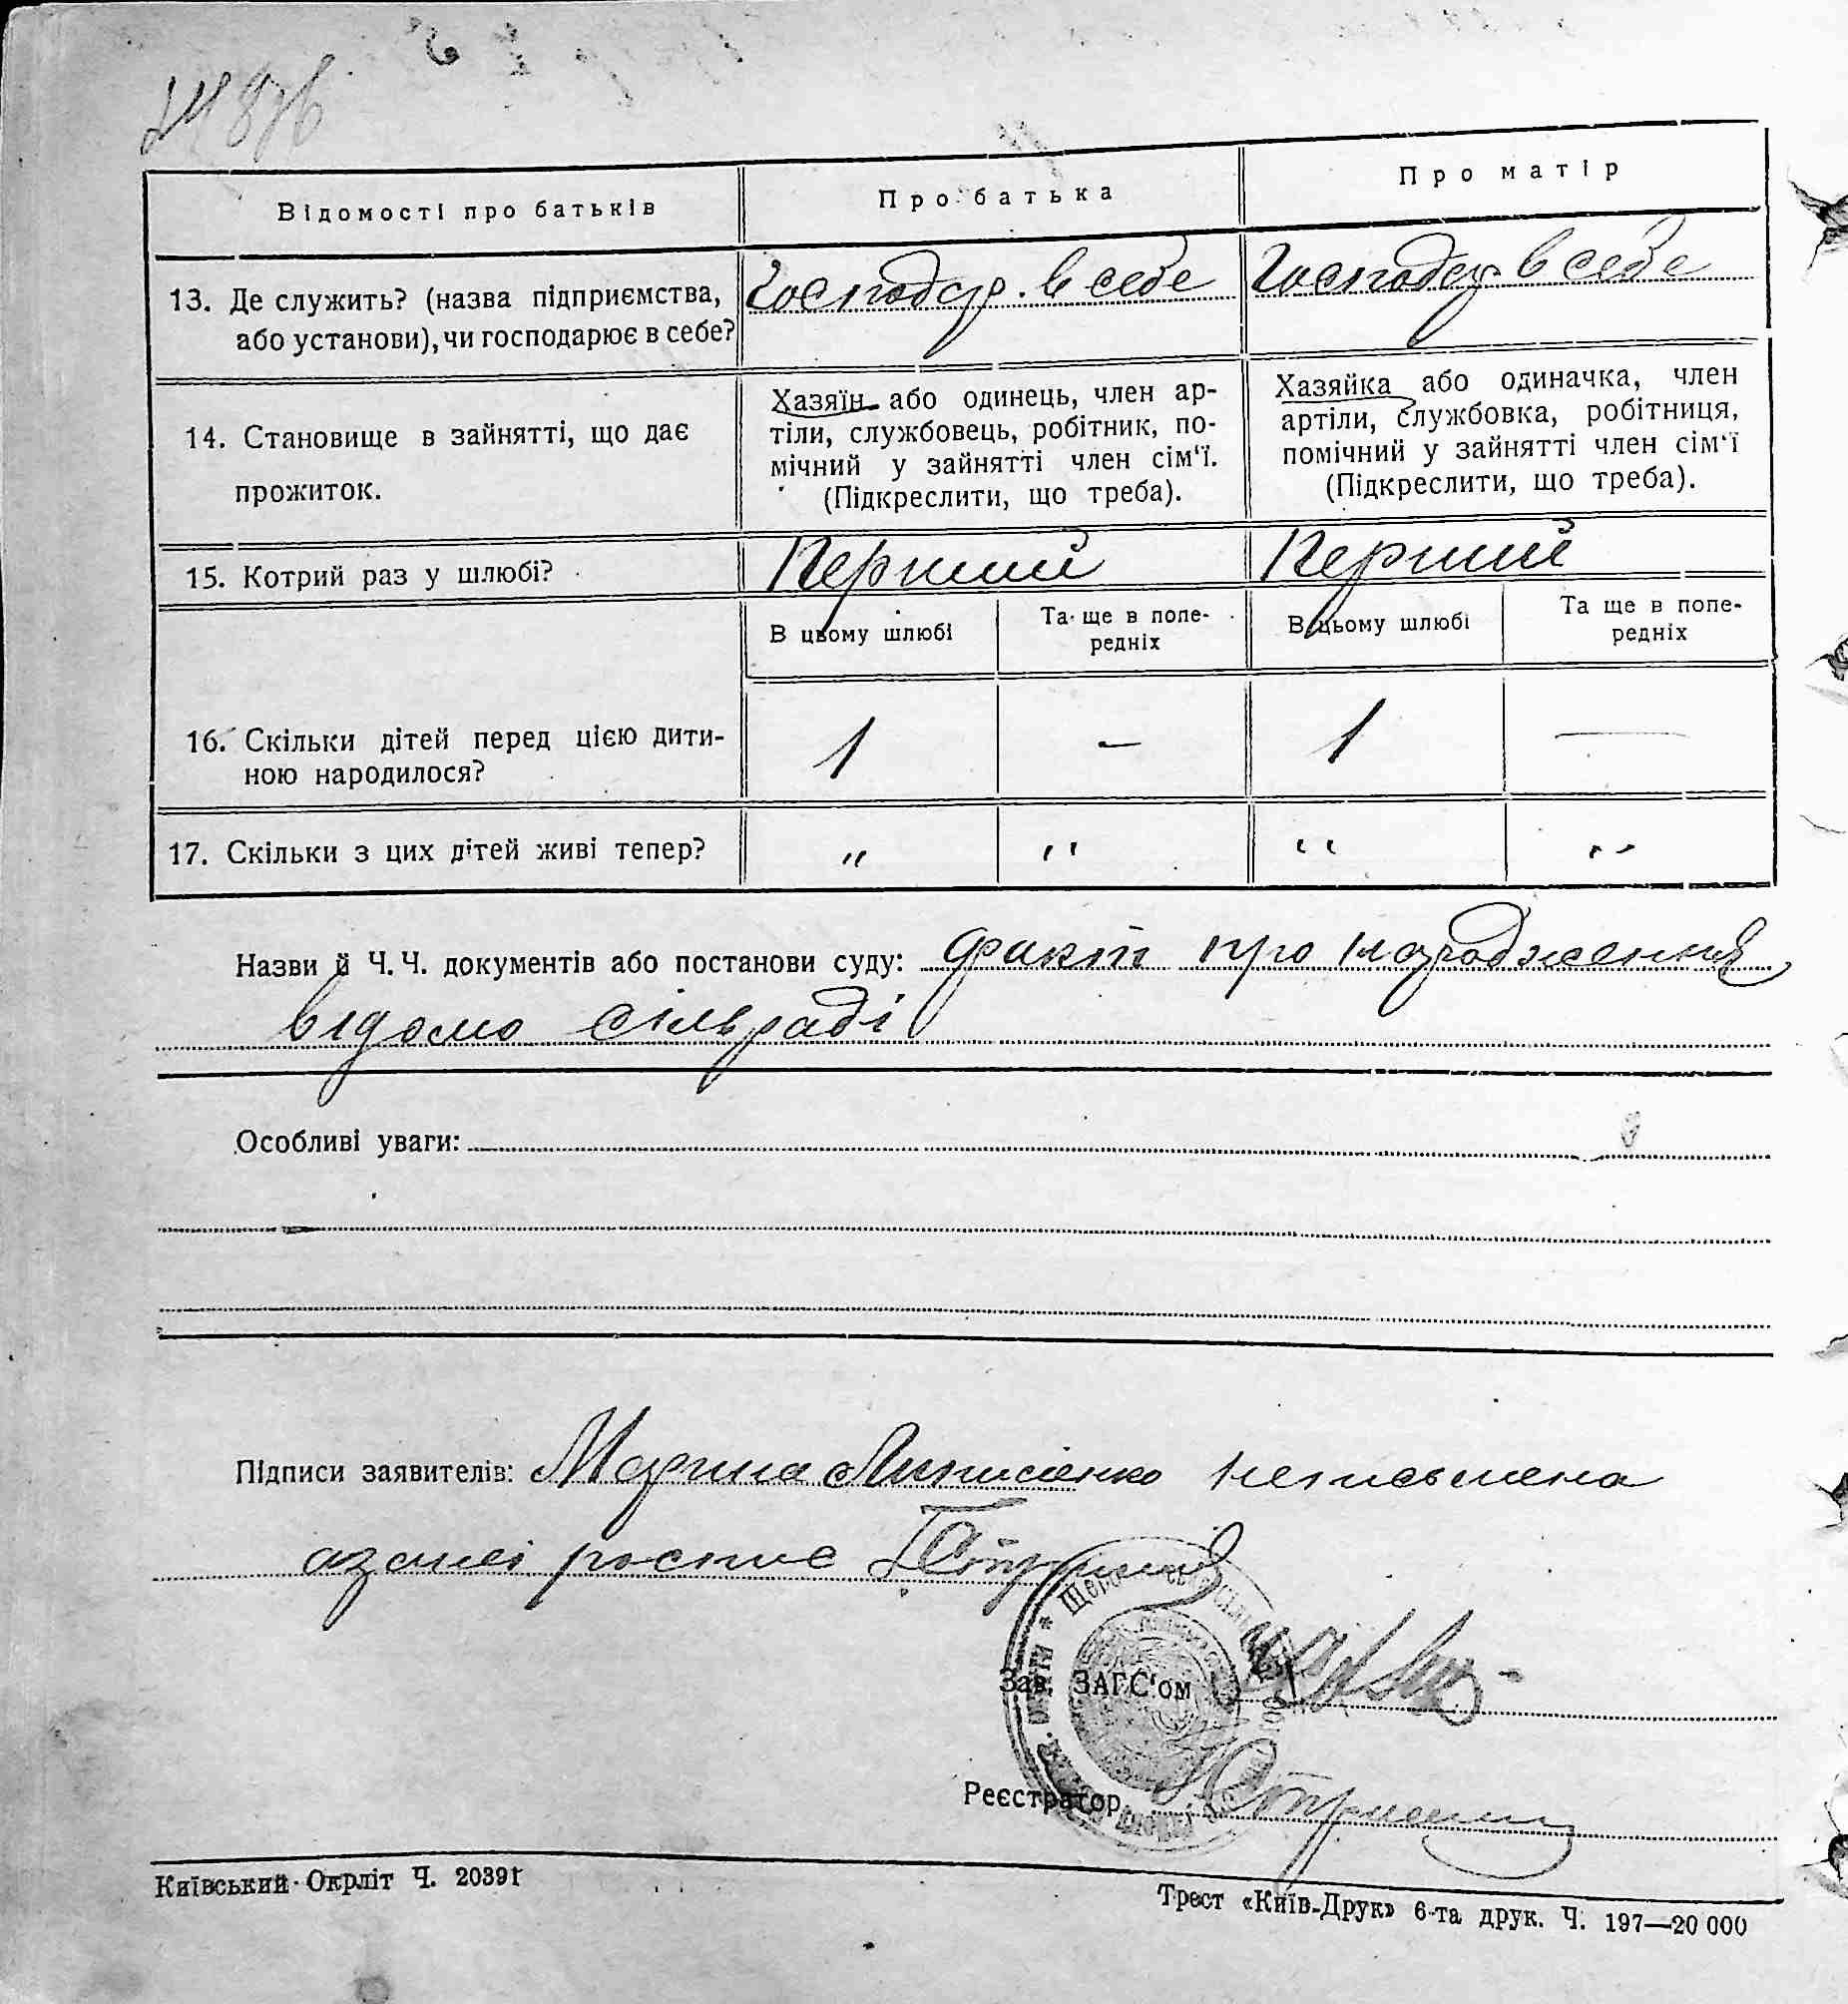 Відомості про батьків
Про батька
Про матір
13. Де служить? (назва підприємства,
або установи), чи господарює в себе?
Господар. в себе
Господар в себе
14. Становище в зайнятті, що дає
прожиток.
Хазяїн або одинець, член ар-
тіли, службовець, робітник, по-
мічний у зайнятті член сім'ї.
(Підкреслити, що треба).
Хазяйка або одиначка, член
артіли, службовка, робітниця,
помічний у зайнятті член сім'ї
(Підкреслити, що треба).
15. Котрий раз у шлюбі?
Перший
Перший
В цьому шлюбі
Та ще в попе-
редніх
В цьому шлюбі
Та ще в попе-
редніх
16. Скільки дітей перед цією дити-
ною народилося?
1
—
1
—
17. Скільки з цих дітей живі тепер?
"
"
"
"
Назви й Ч. Ч. документів або постанови суду: факт про народження
відомо сільраді
Особливі уваги:
Підписи заявителів: Марина неписьмена
Зав. ЗАГС'ом
Реєстратор
Київський Окрліт Ч. 20391
Трест «Київ-Друк» 6-та друк. Ч. 197—20 000